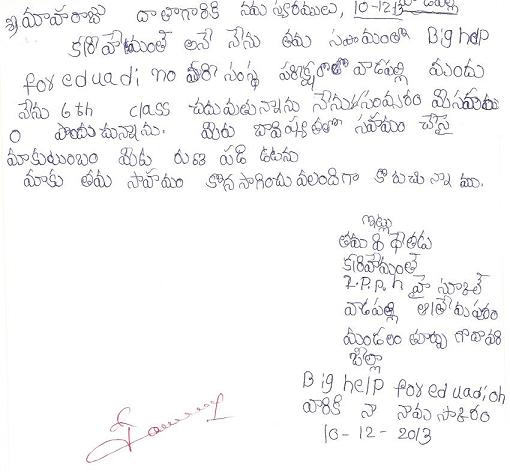 శ్రీ మాహరాజు దాతాగారికి నమస్కారములు, 10-12
కరి హేమంత్ అనే నేను తమ సహాయంతో Big help
for eduadi no వారి సంస్థ వాడపల్లి ముందు
నేను 6th class చదువుతున్నాను నేను సంవ్సరం మీ సహయ
o పొందుచున్నాను. మీరు బావిష్యతలో సహయం చేస్తె
మాకుటుంబం మీకు రుణ పడి ఉటను
మాకు తమ సాహయం కొన సాగించు వలందిగా కొరుచున్నాము.
ఇట్లు
తమ వి ధేతుడు
కరి హేమంత్
Z.P.P.h హై స్కూల్
వాడపల్లి ఆత్రేయపురం
మండలం తూర్పు గొదావరి
జిల్లా
Big help for eduadioh
వారికి నా నామస్కారం
10-12-2013